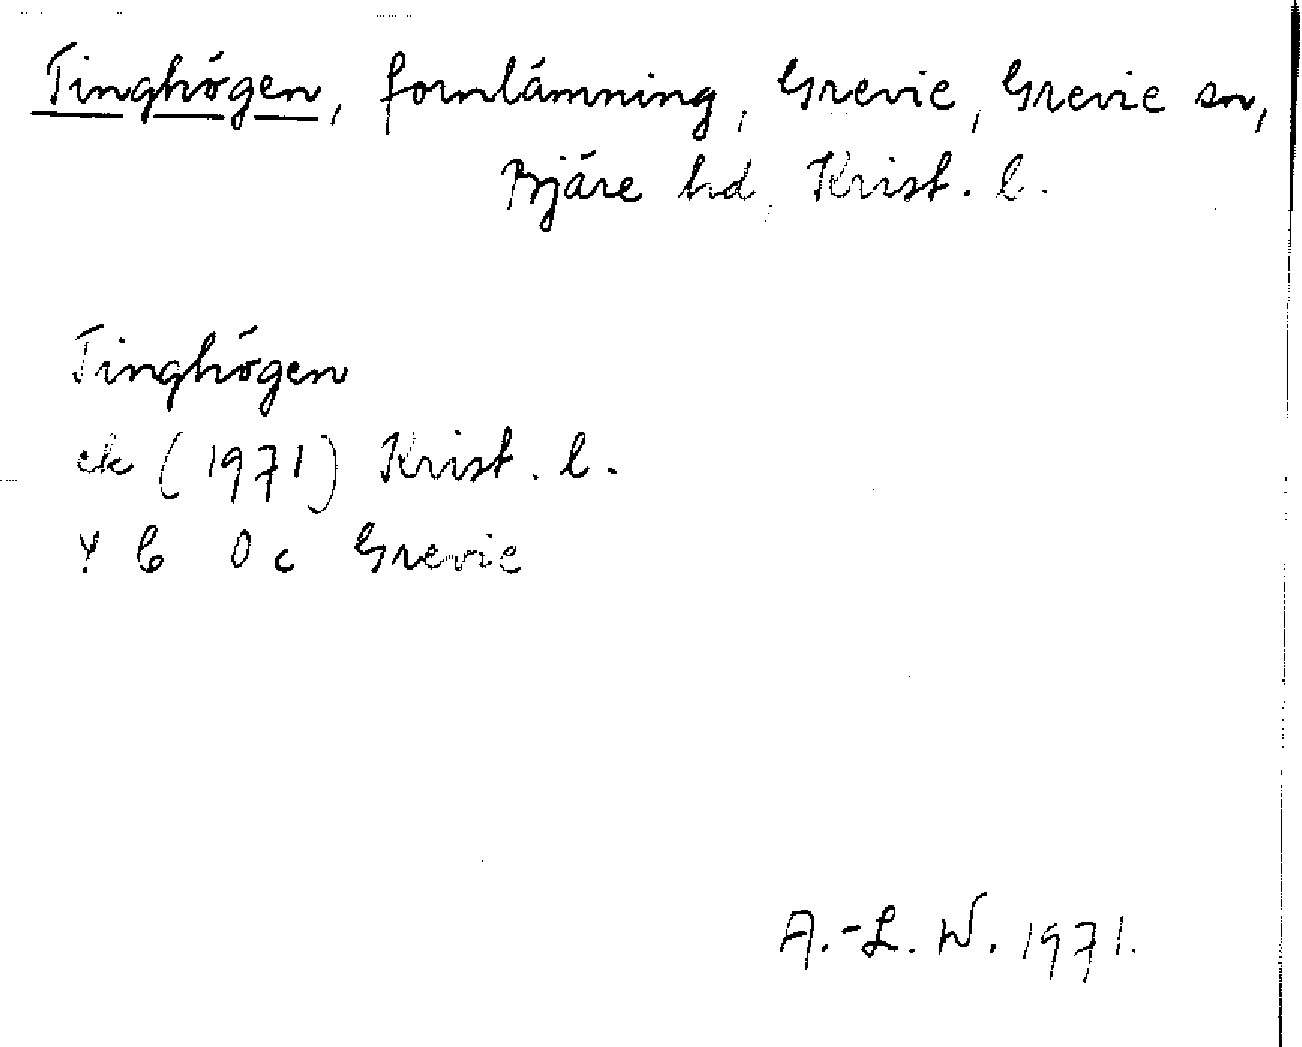 Tinghögen, fornlämning, Grevie, Grevie sn,
Bjäre hd, Krist. l.
Tinghögen
ek (1971) Krist. l.
Grevie
A.-L. W. 1971.